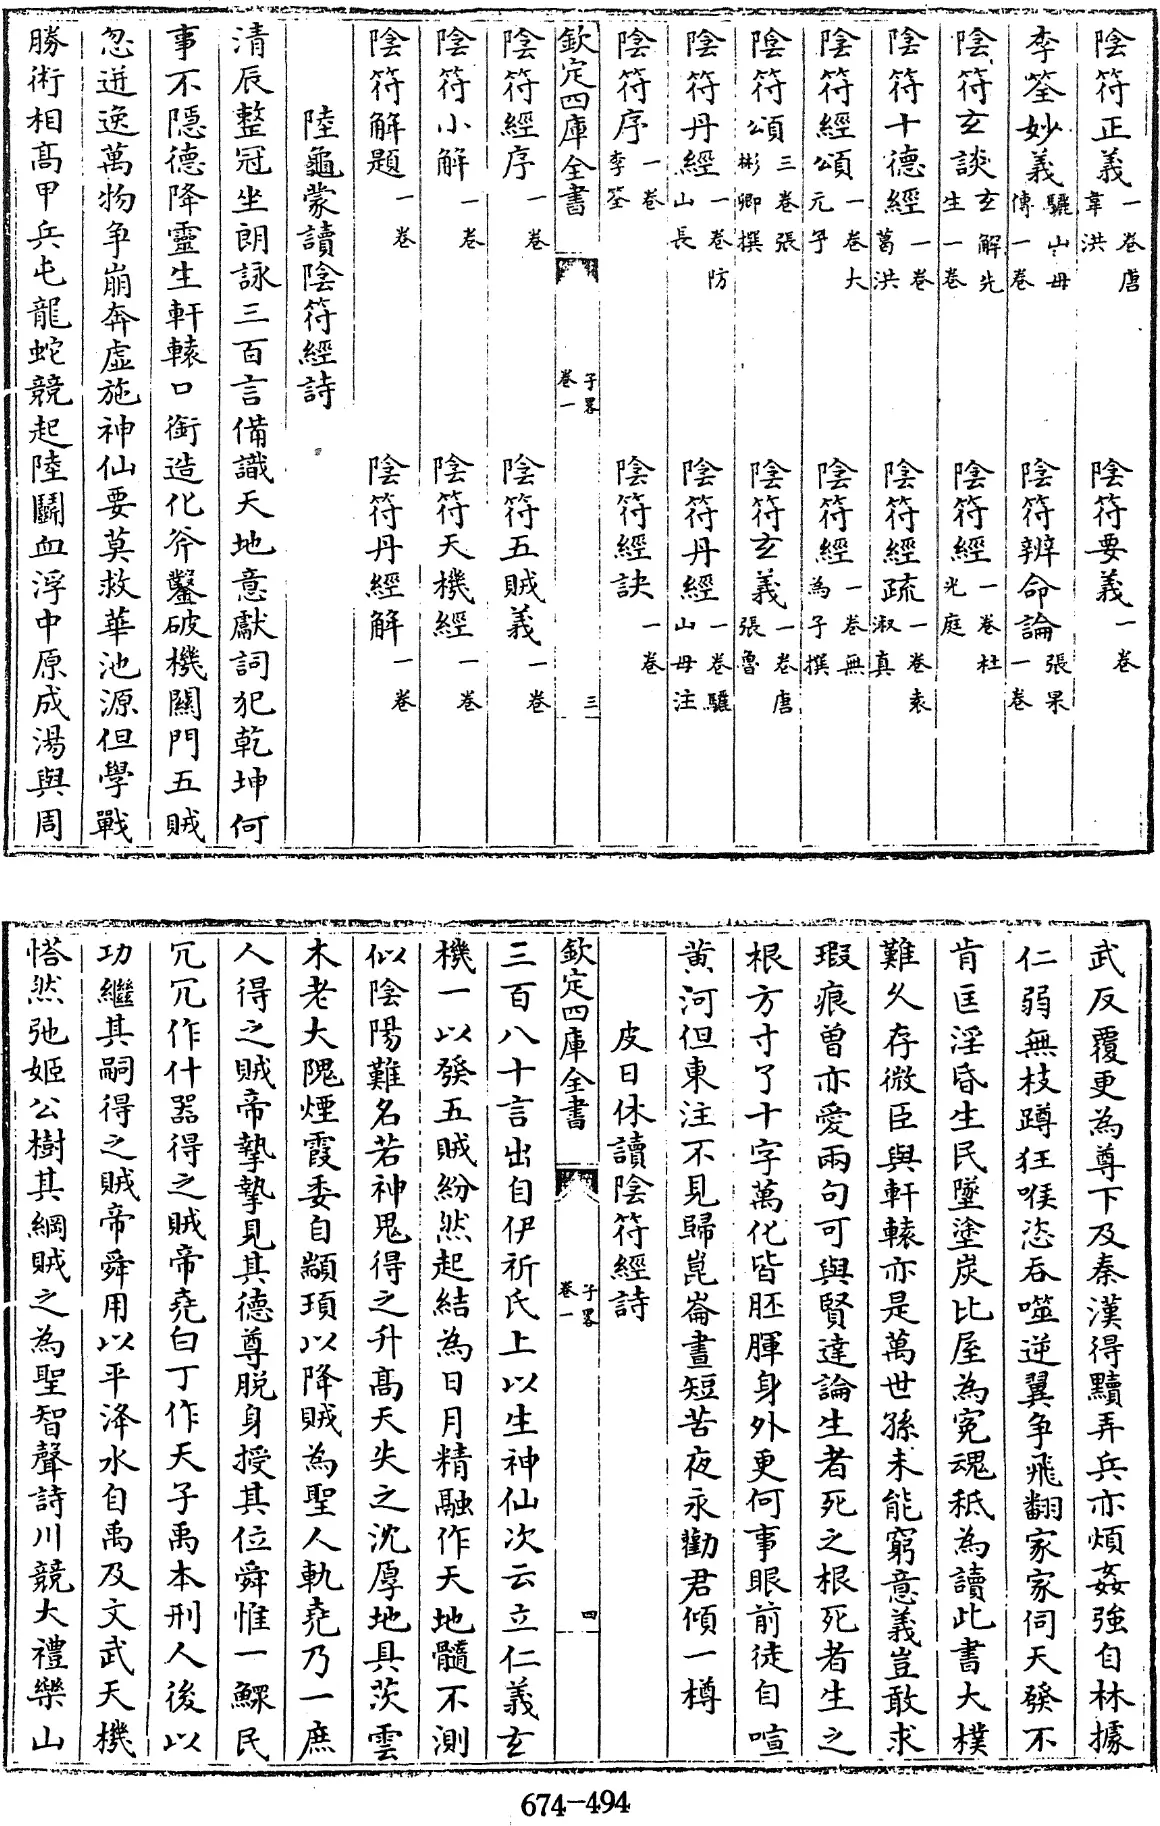 陰符正義一卷唐韋洪　陰符要義一卷
李筌妙義驪山母傳一卷　陰符辨命論張果一卷
陰符玄談玄解先生一卷　陰符經一卷杜光庭
陰符十德經一卷葛洪　陰符經疏一卷袁淑真
陰符經頌一卷大元子　陰符經一卷無為子撰
陰符頌三卷張彬卿撰　陰符玄義一卷唐張魯
陰符丹經一卷防山長　陰符丹經一卷驪山母注
陰符序一卷李筌　陰符經訣一卷
欽定四庫全書　子畧卷一　三
陰符經序一卷　陰符五賊義一卷
陰符小解一卷　陰符天機經一卷
陰符解題一卷　陰符丹經解一卷
陸龜蒙讀陰符經詩
清辰整冠坐朗詠三百言備識天地意獻詞犯乾坤何
事不隱德降靈生軒轅口銜造化斧鑿破機關門五賊
忽迸逸萬物争崩奔虛施神仙要莫救華池源但學戰
勝術相高甲兵屯龍蛇競起陸鬭血浮中原成湯與周
武反覆更為尊下及秦漢得黷弄兵亦煩姦強自林據
仁弱無枝蹲狂喉恣吞噬逆翼争飛翻家家伺天發不
肯匡淫昏生民墜塗炭比屋為寃魂秪為讀此書大樸
難久存微臣與軒轅亦是萬世孫未能窮意義豈敢求
瑕痕曽亦愛兩句可與賢達論生者死之根死者生之
根方寸了十字萬化皆胚腪身外更何事眼前徒自喧
黄河但東注不見歸崑崙晝短苦夜永勸君傾一樽
皮日休讀陰符經詩
欽定四庫全書　子畧卷一　四
三百八十言出自伊祈氏上以生神仙次云立仁義玄
機一以發五賊紛然起結為日月精融作天地髓不測
似陰陽難名若神鬼得之升高天失之沈厚地具茨雲
木老大隗煙霞委自顓頊以降賊為聖人軌堯乃一庶
人得之賊帝摯摯見其德尊脱身授其位舜惟一鰥民
冗冗作什噐得之賊帝堯白丁作天子禹本刑人後以
功繼其嗣得之賊帝舜用以平洚水自禹及文武天機
㥉然弛姬公樹其綱賊之為聖智聲詩川競大禮樂山
674-494